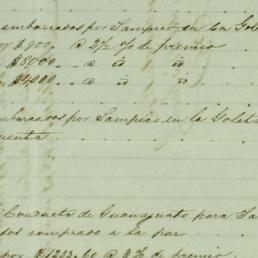 embarcados por Tampico en la Gole
$900 @ 2½ % de premio
$5,000 " @ " "
$4,000 " @ " "
mbarcados por Tampico en la Goleta
uenta
Conducta de Guanajuato para Ta
dos comprado a la par
por $1233.60 @ 3 % de premio